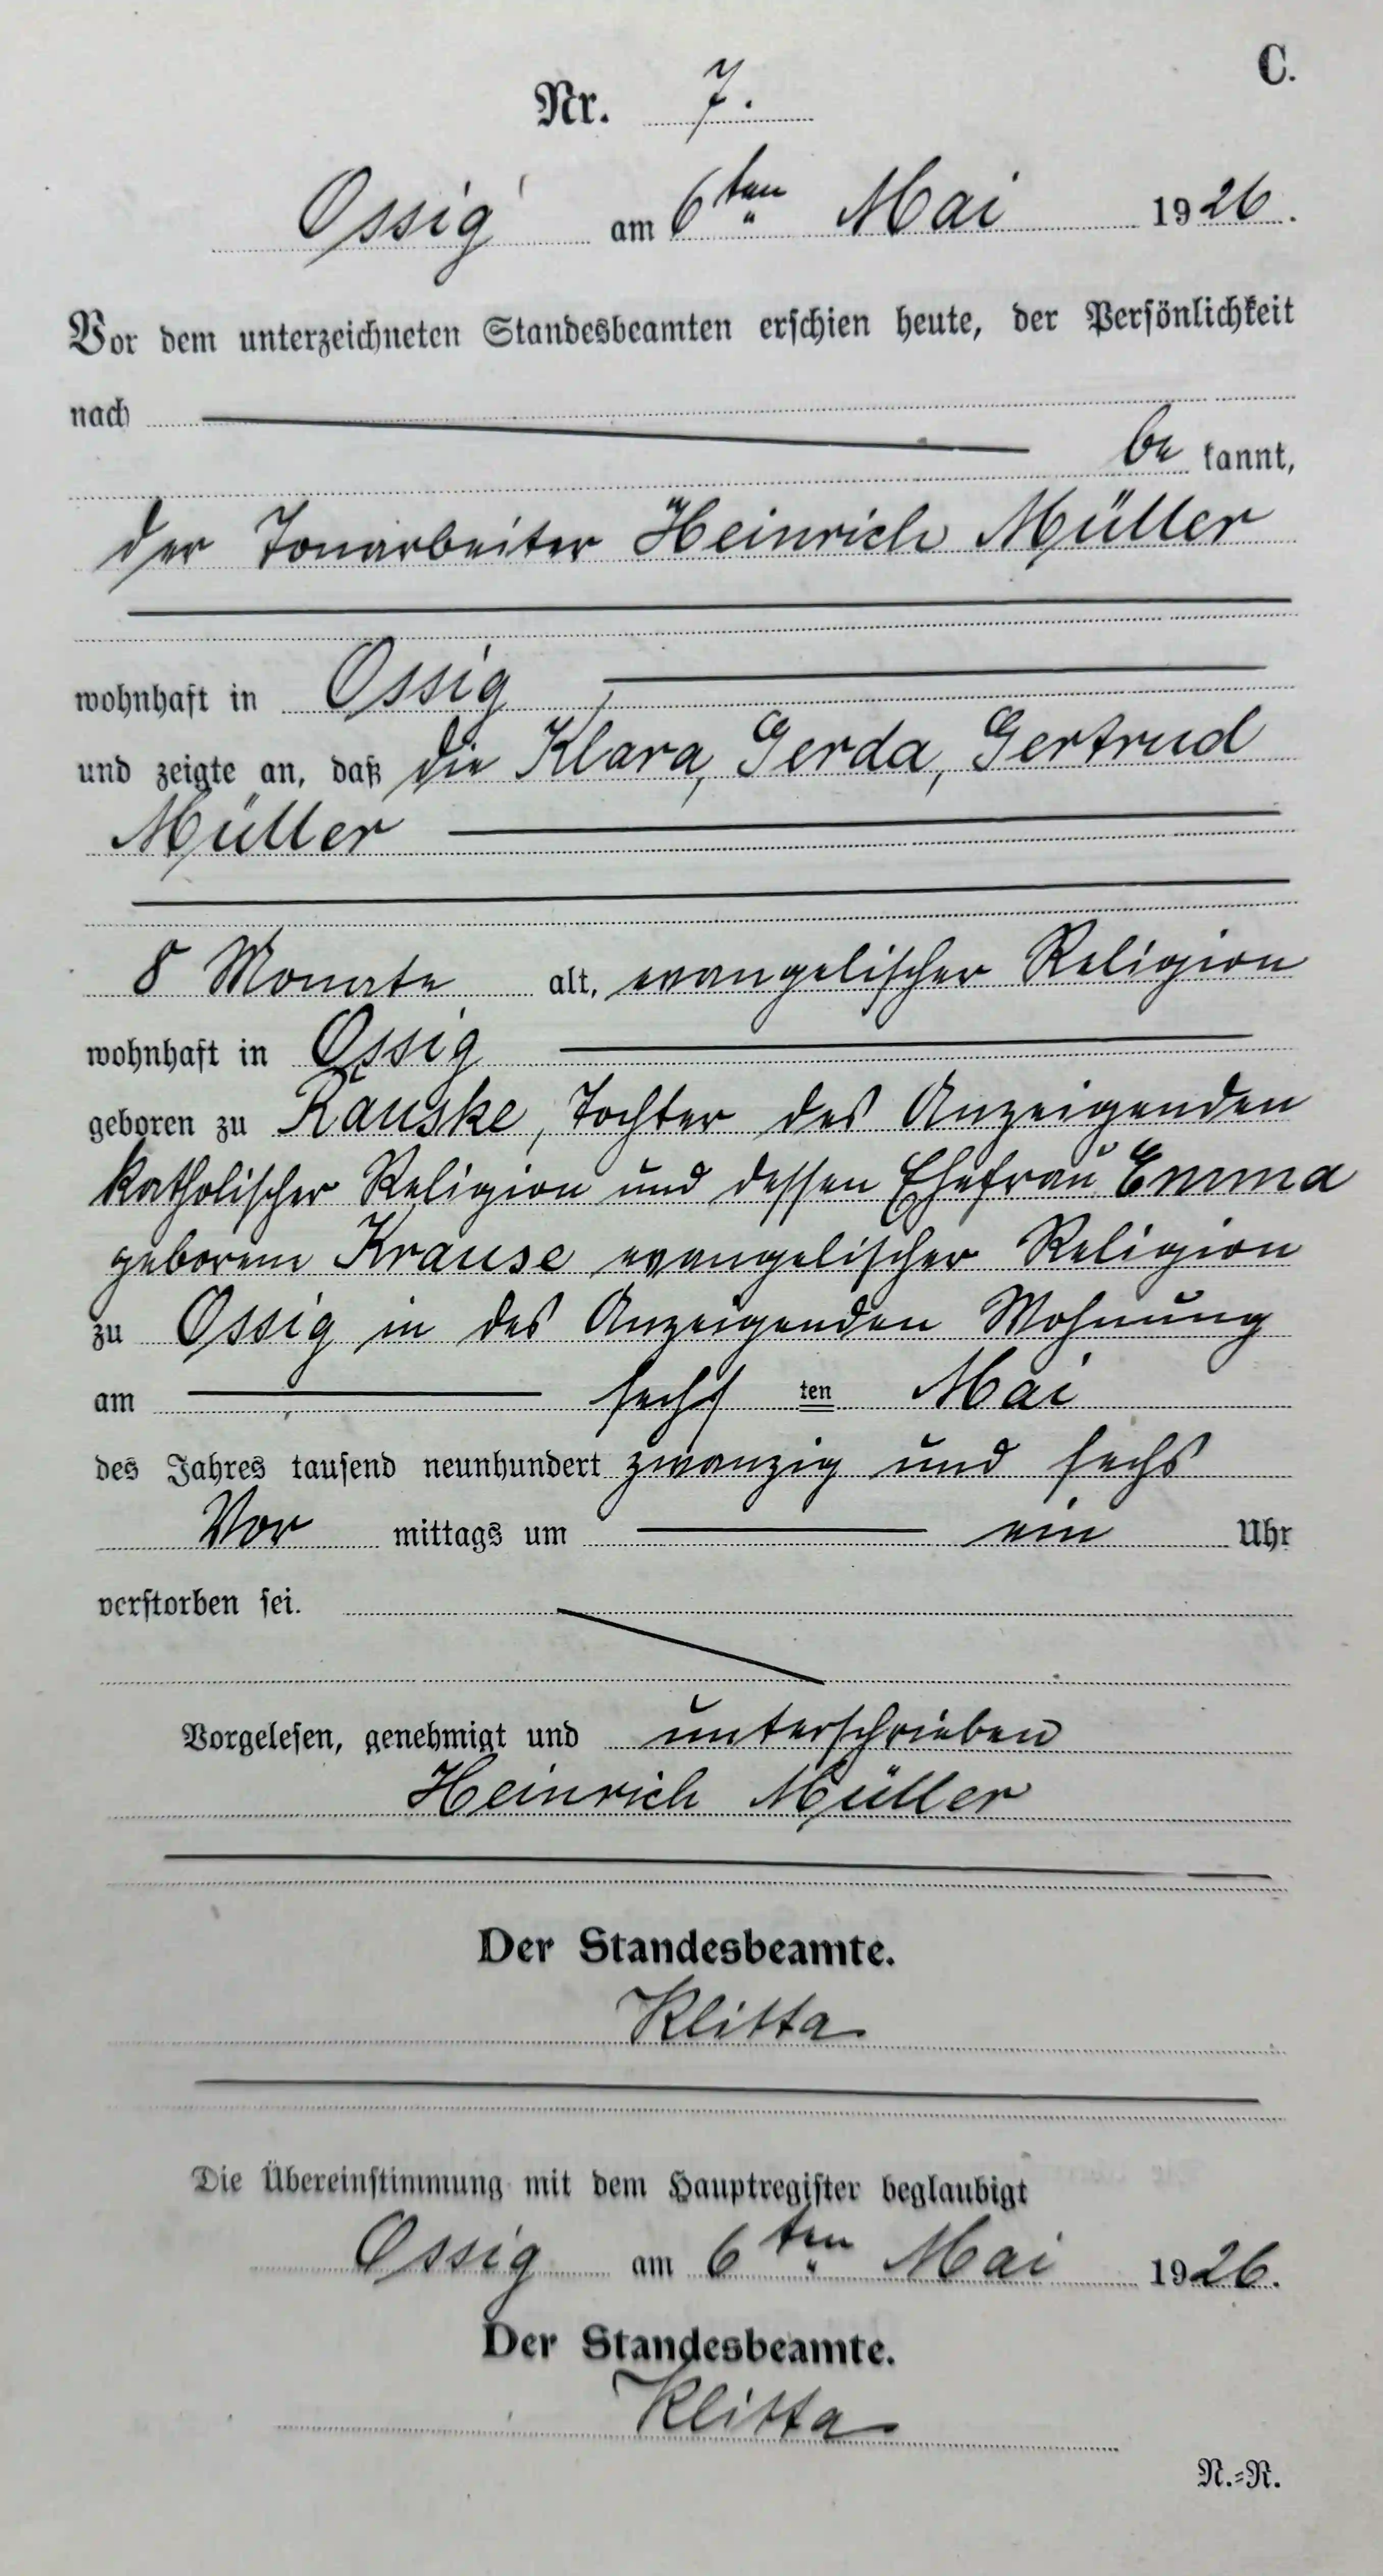 C.
Nr. 7.
Ossig am 6ten Mai 1926.
Vor dem unterzeichneten Standesbeamten erschien heute, der Persönlichkeit
nach
be kannt,
der Tonarbeiter Heinrich Müller
wohnhaft in Ossig
und zeigte an, daß die Klara, Gerda, Gertrud
Müller
8 Monate alt, evangelischer Religion
wohnhaft in Ossig
geboren zu Rauske, Tochter des Anzeigenden
katholischer Religion und dessen Ehefrau Emma
geborene Krause evangelischer Religion
zu Ossig in des Anzeigenden Wohnung
am sechs ten Mai
des Jahres tausend neunhundert zwanzig und sechs
Vor mittags um ein Uhr
verstorben sei.
Vorgelesen, genehmigt und unterschrieben
Heinrich Müller
Der Standesbeamte.
Klitta
Die Übereinstimmung mit dem Hauptregister beglaubigt
Ossig am 6ten Mai 1926.
Der Standesbeamte.
Klitta
N.=R.